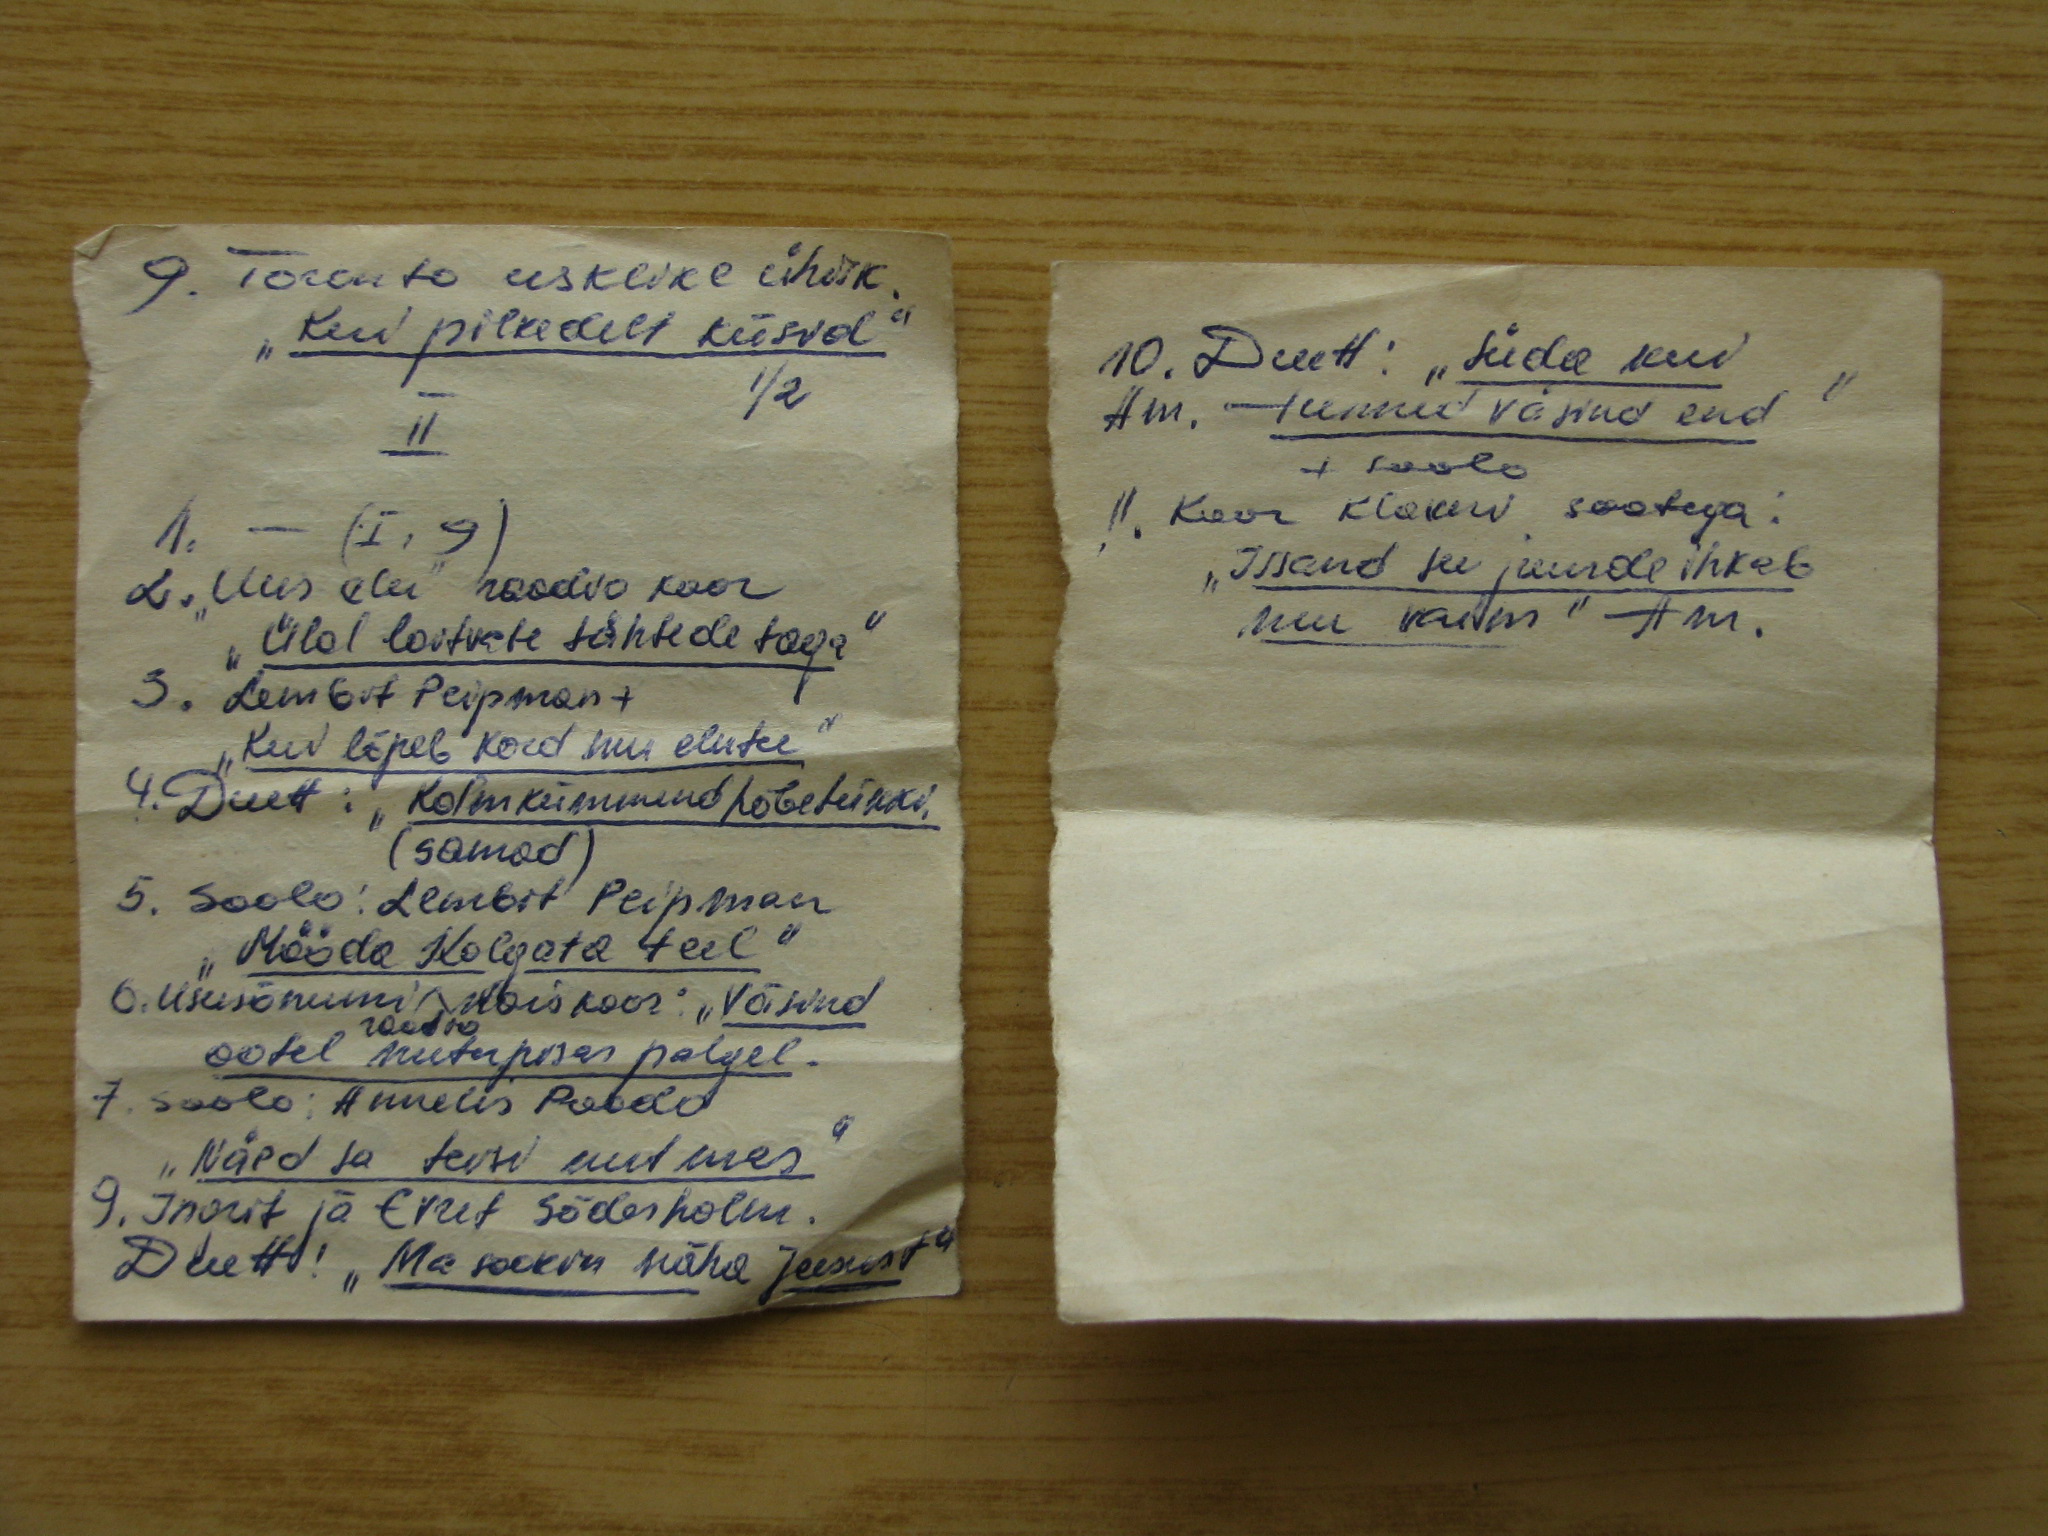 9. Toronto usklike ühisk.
„Kui pilkedelt küsvd"
1/2
II
1. — (I, 9)
2. „Uus elu" raadio koor
„Ülal loitvate tähtede taga"
3. Lembit Peipman +
„Kui lõpeb kord mu elutee"
4. Duett: „Kolmkümmend hõbetükki.
(samad)
5. Soolo: Lembit Peipman
„Mööda Kolgata teel"
6. Ususõnumi raadio Naiskoor: „Väsind
ootel palgel.
7. Soolo: Annelis
„Näed sa teisi nutmas"
9. Ingrit ja Evret Söderholm.
Duett: „Ma tahan näha Jeesust"
10. Duett: „Süda kui
Am. — tunned väsind end"
+ soolo
11. Koor klaveri saatega:
„Issand su juurde ihkab
mu vaim" Am.